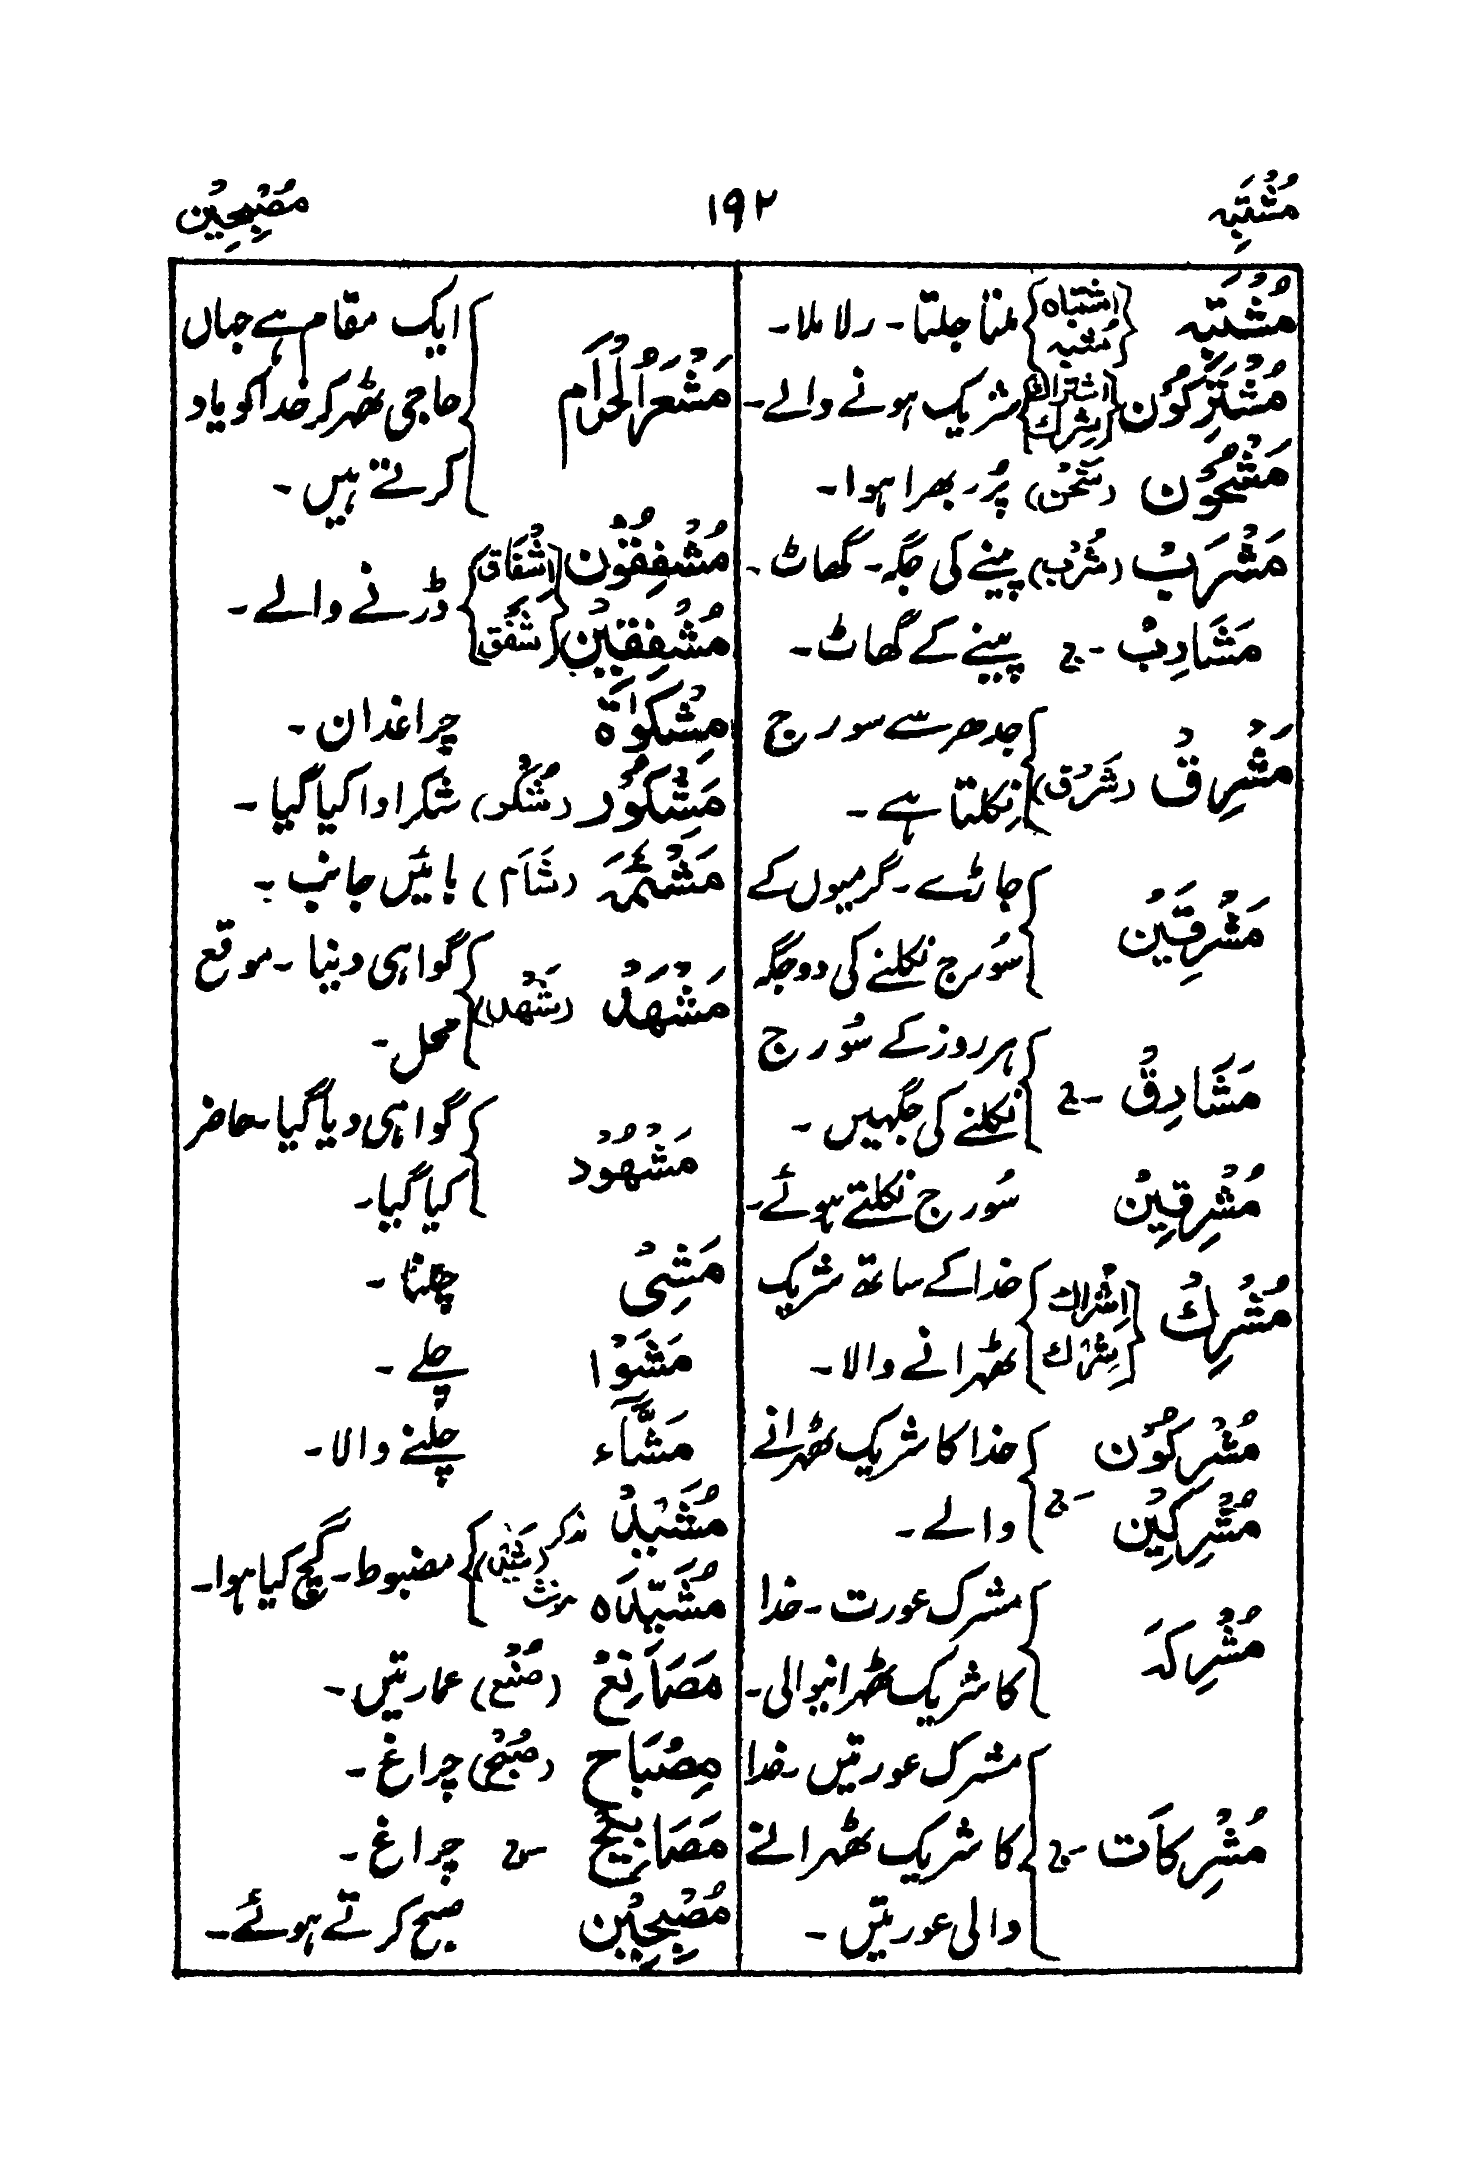 مُشْتَبِہ ۱۹۲ مُصْبِحِیْن
مُشْتَبِہ {اشتباہ شبہ} ملتا جلتا۔ رلا ملا۔
مُشْتَرِکُوْن {اشتراک شرک} شریک ہونے والے۔
مَشْحُوْن (شَحْن) پُر۔ بھرا ہوا۔
مَشْرَبْ (شُرْب) پینے کی جگہ۔ گھاٹ۔
مَشَارِبْ ۔ج پینے کے گھاٹ۔
مَشْرِقْ (شَرْق) { جدھر سے سورج
نکلتا ہے۔
مَشْرِقَیْن { جاڑے۔ گرمیوں کے
سُورج نکلنے کی دو جگہ
مَشَارِقْ ۔ج { ہر روز کے سُورج
نکلنے کی جگہیں۔
مُشْرِقِیْن سُورج نکلتے ہوئے۔
مُشْرِكْ {اِشْراك شِرْك} { خدا کے ساتھ شریک
ٹھہرانے والا۔
مُشْرِكُوْن { خدا کا شریک ٹھہرانے
مُشْرِكِیْن ۔ج والے۔
مُشْرِکَہ { مشرک عورت۔ خدا
کا شریک ٹھہرانیوالی۔
مُشْرِکَات ۔ج { مشرک عورتیں۔ خدا
کا شریک ٹھہرانے
والی عورتیں۔
مَشْعَرُ الْحَرَام { ایک مقام ہے جہاں
حاجی ٹھہر کر خدا کو یاد
کرتے ہیں۔
مُشْفِقُوْن {اِشْفَاق
مُشْفِقِیْن شَفَق} ڈرنے والے۔
مِشْکٰوۃ چراغدان۔
مَشْکُوْر (شُکْر) شکر ادا کیا گیا۔
مَشْئَمَہ (شَاَم) بائیں جانب۔
مَشْهَدْ (شَهْد) { گواہی دینا۔ موقع
محل۔
مَشْهُوْد { گواہی دیا گیا۔ حاضر
کیا گیا۔
مَشْیْ چلنا۔
مَشَوْا چلے۔
مَشَّآء چلنے والا۔
مُشَیَّدْ مذکر (شَیْد) { مضبوط۔ گچ کیا ہوا۔
مُشَیَّدَہ مونث
مَصَانِعْ (صُنْع) عمارتیں۔
مِصْبَاح (صُبْح) چراغ۔
مَصَابِیْح ۔ج چراغ۔
مُصْبِحِیْن صبح کرتے ہوئے۔